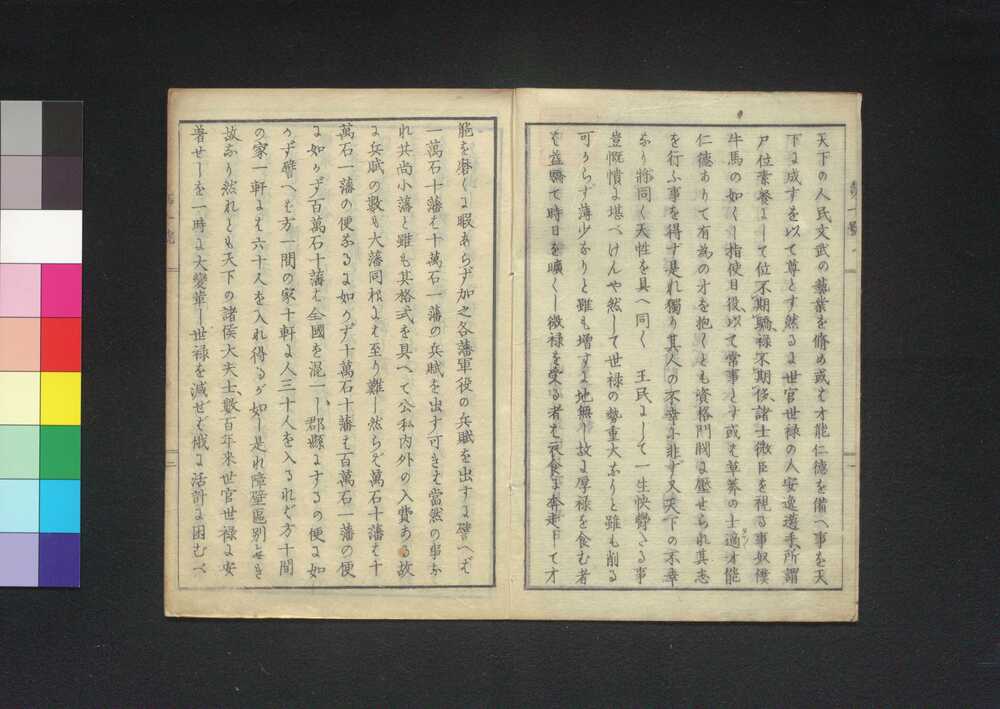 天下の人民文武の藝業を脩め或は才能仁徳を備へ事を天
下に成すを以て尊とす然るに世官世禄の人安逸遊手所謂
尸位素餐にして位不期驕禄不期侈諸士微臣を視る事奴僕
牛馬の如くし指使目役以て常事とす或は草莽の士適才能
仁徳ありて有為の才を抱くとも資格門閥に壓せられ其志
を行ふ事を得ず是れ獨り其人の不幸に非ず又天下の不幸
なり将同く天性を具へ同く 王民にして一生快欝たる事
豈慨憤に堪べけんや然して世禄の勢重大なりと雖も削る
可らず薄少なりと雖も増すに地無し故に厚禄を食む者
は益驕て時日を曠くし微禄を受る者は衣食に奔走して才
能を磨くに暇あらず加之各藩軍役の兵賦を出すに譬へば
一萬石十藩は十萬石一藩の兵賦を出す可きは當然の事な
れ共尚小藩と雖も其格式を具へて公私内外の入費ある故
に兵賦の數も大藩同様には至り難し然らば萬石十藩は十
萬石一藩の便なるに如かず十萬石十藩は百萬石一藩の便
に如かず百萬石十藩は全國を混一し郡縣にするの便に如
かず譬へば方一間の家十軒に人三十人を入るれば方十間
の家一軒には六十人を入れ得るが如し是れ障壁區別無き
故なり然れとも天下の諸侯大夫士數百年来世官世禄に安
着せしを一時に大變革し世禄を減せば俄に活計に困むべ